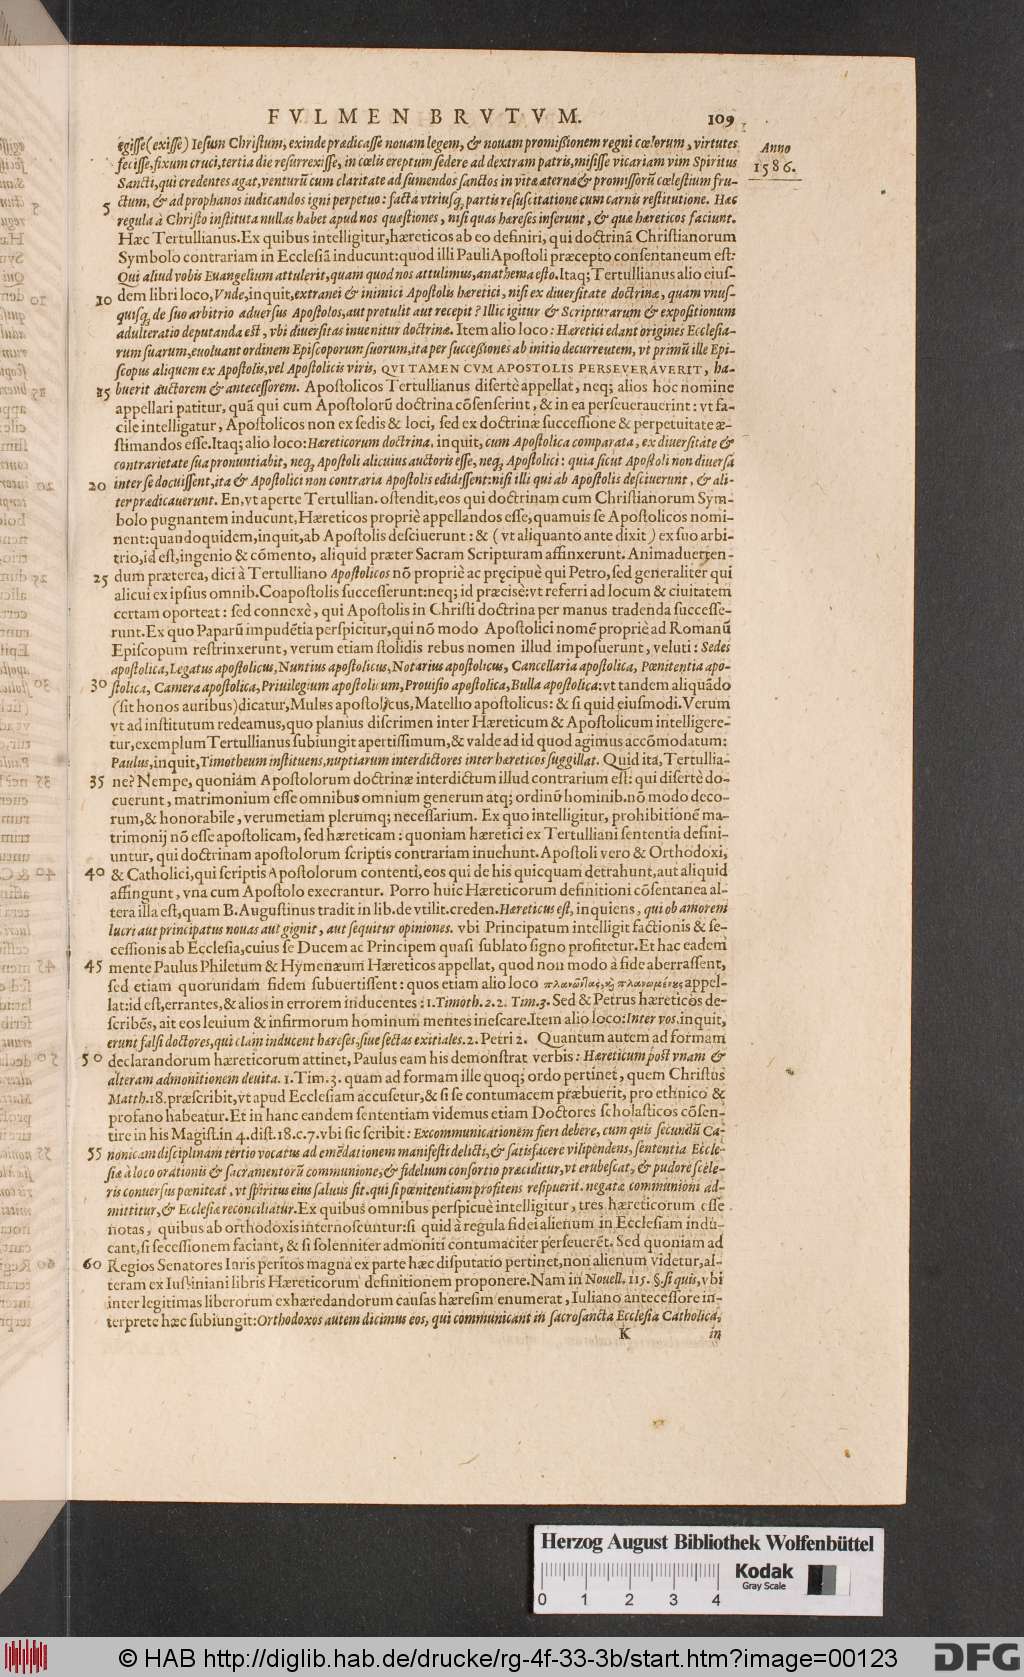 FVLMEN BRVTVM. 109
Anno
1586.
egisse (exisse) Iesum Christum, exinde prædicasse nouam legem, & nouam promißionem regni cœlorum, virtutes
fecisse, fixum cruci, tertia die resurrexisse, in cœlis ereptum sedere ad dextram patris, misisse vicariam vim Spiritus
Sancti, qui credentes agat, venturũ cum claritate ad sumendos sanctos in vitæ æternæ & promissorũ cœlestium fru-
5 ctum, & ad prophanos iudicandos igni perpetuo: facta vtriusq; partis resuscitatione cum carnis restitutione. Hæc
regula à Christo instituta nullas habet apud nos quæstiones, nisi quas hæreses inferunt, & quæ hæreticos faciunt.
Hæc Tertullianus. Ex quibus intelligitur, hæreticos ab eo definiri, qui doctrinã Christianorum
Symbolo contrariam in Ecclesiã inducunt: quod illi Pauli Apostoli præcepto consentaneum est:
Qui aliud vobis Euangelium attulerit, quam quod nos attulimus, anathema esto. Itaq; Tertullianus alio eius-
10 dem libri loco, Vnde, inquit, extranei & inimici Apostolis hæretici, nisi ex diuersitate doctrinæ, quam vnus-
quisq; de suo arbitrio aduersus Apostolos, aut protulit aut recepit? Illic igitur & Scripturarum & expositionum
adulteratio deputanda est, vbi diuersitas inuenitur doctrinæ. Item alio loco: Hæretici edant origines Ecclesia-
rum suarum, euoluant ordinem Episcoporum suorum, ita per succeßiones ab initio decurrentem, vt primũ ille Epi-
scopus aliquem ex Apostolis, vel Apostolicis viris, QVI TAMEN CVM APOSTOLIS PERSEVERAVERIT, ha-
15 buerit auctorem & antecessorem. Apostolicos Tertullianus disertè appellat, neq; alios hoc nomine
appellari patitur, quã qui cum Apostolorũ doctrina cõsenserint, & in ea perseuerauerint: vt fa-
cile intelligatur, Apostolicos non ex sedis & loci, sed ex doctrinæ successione & perpetuitate æ-
stimandos esse. Itaq; alio loco: Hæreticorum doctrina, inquit, cum Apostolica comparata, ex diuersitate &
contrarietate sua pronuntiabit, neq; Apostoli alicuius auctoris esse, neq; Apostolici: quia sicut Apostoli non diuersa
20 inter se docuissent, ita & Apostolici non contraria Apostolis edidissent: nisi illi qui ab Apostolis desciuerunt, & ali-
ter prædicauerunt. En, vt aperte Tertullian. ostendit, eos qui doctrinam cum Christianorum Sym-
bolo pugnantem inducunt, Hæreticos propriè appellandos esse, quamuis se Apostolicos nomi-
nent: quandoquidem, inquit, ab Apostolis desciuerunt: & (vt aliquanto ante dixit) ex suo arbi-
trio, id est, ingenio & cõmento, aliquid præter Sacram Scripturam affinxerunt. Animaduerten-
25 dum præterea, dici à Tertulliano Apostolicos nõ propriè ac pręcipuè qui Petro, sed generaliter qui
alicui ex ipsius omnib. Coapostolis successerunt: neq; id præcisè: vt referri ad locum & ciuitatem
certam oporteat: sed connexè, qui Apostolis in Christi doctrina per manus tradenda successe-
runt. Ex quo Paparũ impudẽtia perspicitur, qui nõ modo Apostolici nomẽ propriè ad Romanũ
Episcopum restrinxerunt, verum etiam stolidis rebus nomen illud imposuerunt, veluti: Sedes
apostolica, Legatus apostolicus, Nuntius apostolicus, Notarius apostolicus, Cancellaria apostolica, Pœnitentia apo-
30 stolica, Camera apostolica, Priuilegium apostolicum, Prouisio apostolica, Bulla apostolica: vt tandem aliquãdo
(sit honos auribus) dicatur, Mulus apostolicus, Matellio apostolicus: & si quid eiusmodi. Verum
vt ad institutum redeamus, quo planius discrimen inter Hæreticum & Apostolicum intelligere-
tur, exemplum Tertullianus subiungit apertissimum, & valde ad id quod agimus accõmodatum:
Paulus, inquit, Timotheum instituens, nuptiarum interdictores inter hæreticos suggillat. Quid ita, Tertullia-
35 ne? Nempe, quoniam Apostolorum doctrinæ interdictum illud contrarium est: qui disertè do-
cuerunt, matrimonium esse omnibus omnium generum atq; ordinũ hominib. nõ modo deco-
rum, & honorabile, verumetiam plerumq; necessarium. Ex quo intelligitur, prohibitionẽ ma-
trimonij nõ esse apostolicam, sed hæreticam: quoniam hæretici ex Tertulliani sententia defini-
untur, qui doctrinam apostolorum scriptis contrariam inuehunt. Apostoli vero & Orthodoxi,
40 & Catholici, qui scriptis Apostolorum contenti, eos qui de his quicquam detrahunt, aut aliquid
affingunt, vna cum Apostolo execrantur. Porro huic Hæreticorum definitioni cõsentanea al-
tera illa est, quam B. Augustinus tradit in lib. de vtilit. creden. Hæreticus est, inquiens, qui ob amorem
lucri aut principatus nouas aut gignit, aut sequitur opiniones. vbi Principatum intelligit factionis & se-
cessionis ab Ecclesia, cuius se Ducem ac Principem quasi sublato signo profitetur. Et hac eadem
45 mente Paulus Philetum & Hymenæum Hæreticos appellat, quod non modo à fide aberrassent,
sed etiam quorundam fidem subuertissent: quos etiam alio loco πλανῶντας, καὶ πλανωμένους appel-
lat: id est, errantes, & alios in errorem inducentes: 1. Timoth. 2. 2. Tim. 3. Sed & Petrus hæreticos de-
scribẽs, ait eos leuium & infirmorum hominum mentes inescare. Item alio loco: Inter vos, inquit,
erunt falsi doctores, qui clam inducent hæreses, siue sectas exitiales. 2. Petri 2. Quantum autem ad formam
50 declarandorum hæreticorum attinet, Paulus eam his demonstrat verbis: Hæreticum post vnam &
alteram admonitionem deuita. 1. Tim. 3. quam ad formam ille quoq; ordo pertinet, quem Christus
Matth. 18. præscribit, vt apud Ecclesiam accusetur, & si se contumacem præbuerit, pro ethnico &
profano habeatur. Et in hanc eandem sententiam videmus etiam Doctores scholasticos cõsen-
tire in his Magist. in 4. dist. 18. c. 7. vbi sic scribit: Excommunicationem fieri debere, cum quis secundũ Ca-
55 nonicam disciplinam tertio vocatus ad emẽdationem manifesti delicti, & satisfacere vilipendens, sententia Eccle-
siæ à loco orationis & sacramentorũ communione, & fidelium consortio præciditur, vt erubescat, & pudore scele-
ris conuersus pœniteat, vt spiritus eius saluus sit. qui si pœnitentiam profitens resipuerit, negatæ communioni ad-
mittitur, & Ecclesiæ reconciliatur. Ex quibus omnibus perspicuè intelligitur, tres hæreticorum esse
notas, quibus ab orthodoxis internoscuntur: si quid à regula fidei alienum in Ecclesiam indu-
cant, si secessionem faciant, & si solenniter admoniti contumaciter perseuerẽt. Sed quoniam ad
60 Regios Senatores Iuris peritos magna ex parte hæc disputatio pertinet, non alienum videtur, al-
teram ex Iustiniani libris Hæreticorum definitionem proponere. Nam in Nouell. 115. §. si quis, vbi
inter legitimas liberorum exhæredandorum causas hæresim enumerat, Iuliano antecessore in-
terprete hæc subiungit: Orthodoxos autem dicimus eos, qui communicant in sacrosancta Ecclesia Catholica,
K in
Herzog August Bibliothek Wolfenbüttel
Kodak
Gray Scale
0 1 2 3 4
© HAB http://diglib.hab.de/drucke/rg-4f-33-3b/start.htm?image=00123
DFG